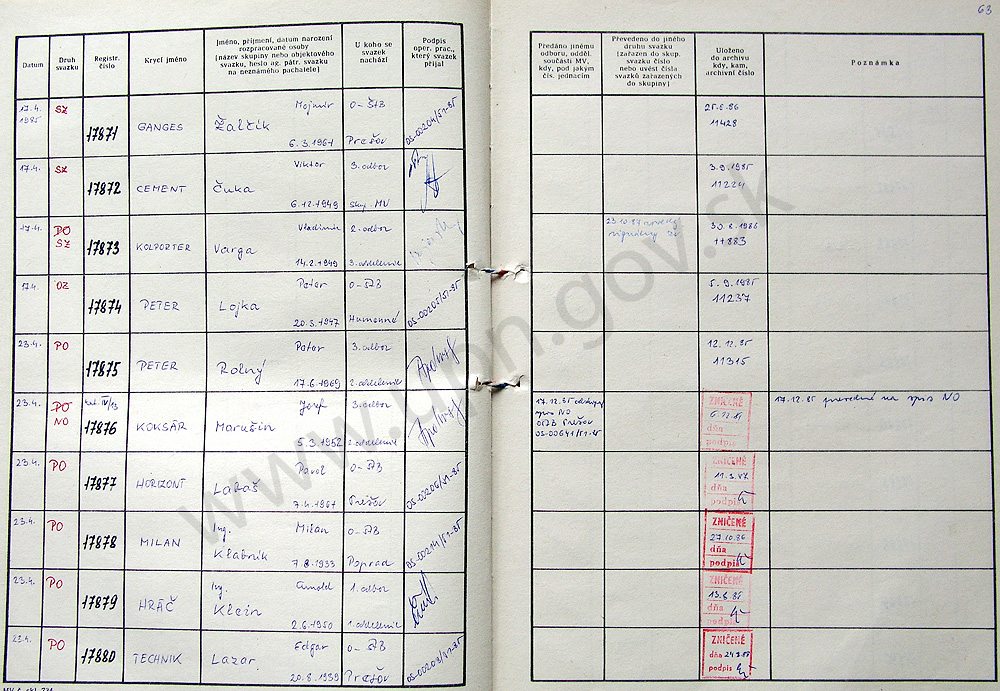 63
Datum
Druh svazku
Registr. číslo
Krycí jméno
Jméno, příjmení, datum narození rozpracované osoby
(název skupiny nebo objektového svazku, heslo ag. pátr. svazku na neznámého pachatele)
U koho se svazek nachází
Podpis oper. prac., který svazek přijal
Předáno jinému odboru, odděl. součásti MV, kdy, pod jakým čís. jednacím
Převedeno do jiného druhu svazku (zařazen do skup. svazku číslo nebo uvést čísla svazků zařazených do skupiny)
Uloženo do archivu kdy, kam, archivní číslo
Poznámka
17.4. 1985 SZ 17871 GANGES Žalčík Mojmír 6.3.1961 O-ŠtB Prešov OS-00204/51-85 25.8.86 11428
17.4. SZ 17872 CEMENT Čuka Viktor 6.12.1949 3.odbor MV 3.9.1985
17.4. PO SZ 17873 KOLPORTER Varga Vladimír 14.2.1949 2.odbor 3.oddelenie 11883
17.4. OZ 17874 PETER Lojka Peter 20.3.1947 O-ŠtB Humenné OS-00205/51-85 5.9.1985 11237
23.4. PO 17875 PETER Rolný Peter 17.6.1969 3.odbor 2.oddelenie 12.12.85 11315
23.4. PO NO 17876 KOKSÁR Marušin Jozef 5.3.1952 3.odbor 2.oddelenie 17.12.85 spis NO Prešov OS-00641/51-85 ZNIČENÉ dňa podpis 17.12.85 prevedené na spis NO
23.4. PO 17877 HORIZONT Labaš Pavol 7.4.1961 O-ŠtB Prešov OS-00206/51-85 ZNIČENÉ dňa podpis
23.4. PO 17878 MILAN Ing. Klabník Milan 7.8.1933 O-ŠtB Poprad OS-00214/51-85 ZNIČENÉ 27.10.86 dňa podpis
23.4. PO 17879 HRÁČ Ing. Klein Arnold 2.6.1950 1.odbor 1.oddelenie ZNIČENÉ 13.6.85 dňa podpis
23.4. PO 17880 TECHNIK Lazor Edgar 20.8.1939 O-ŠtB Prešov ZNIČENÉ dňa podpis
www.upn.gov.sk